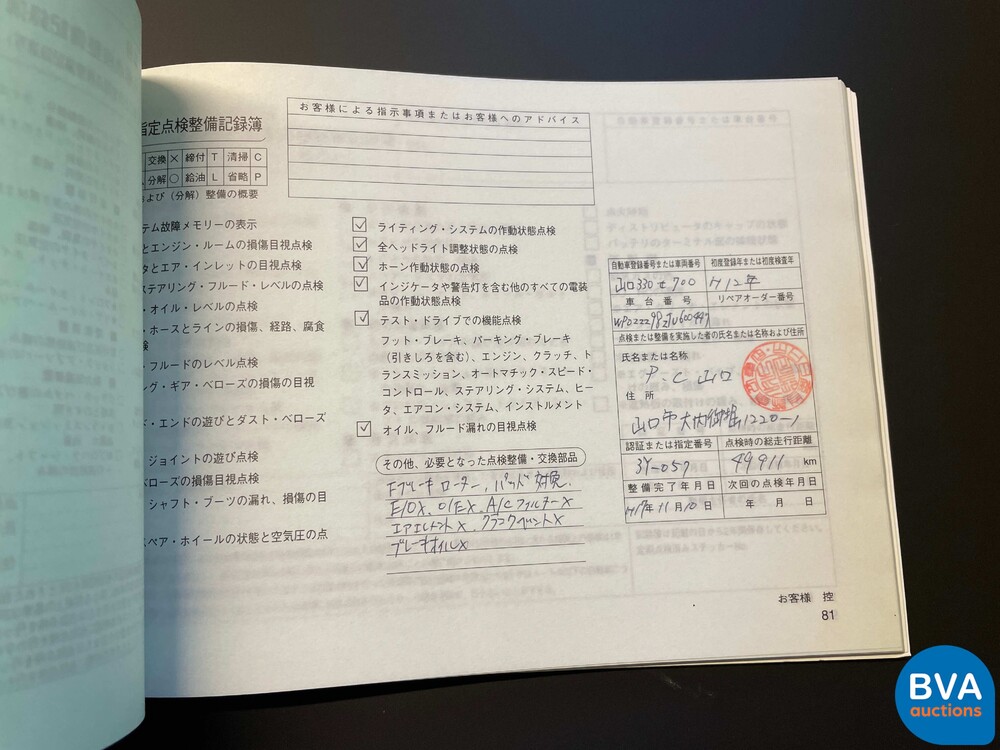 指定点検整備記録簿
交換 × 締付 T 清掃 C
分解 ○ 給油 L 省略 P
および（分解）整備の概要
テム故障メモリーの表示
とエンジン・ルームの損傷目視点検
タとエア・インレットの目視点検
ステアリング・フルード・レベルの点検
・オイル・レベルの点検
・ホースとラインの損傷、経路、腐食
検
・フルードのレベル点検
ング・ギア・ベローズの損傷の目視
・エンドの遊びとダスト・ベローズ
ジョイントの遊び点検
ベローズの損傷目視点検
シャフト・ブーツの漏れ、損傷の目
スペア・ホイールの状態と空気圧の点
お客様による指示事項またはお客様へのアドバイス
ライティング・システムの作動状態点検
全ヘッドライト調整状態の点検
ホーン作動状態の点検
インジケータや警告灯を含む他のすべての電装
品の作動状態点検
テスト・ドライブでの機能点検
フット・ブレーキ、パーキング・ブレーキ
（引きしろを含む）、エンジン、クラッチ、ト
ランスミッション、オートマチック・スピード・
コントロール、ステアリング・システム、ヒー
タ、エアコン・システム、インストルメント
オイル、フルード漏れの目視点検
その他、必要となった点検整備・交換部品
Fブレーキローター、パッド 交換.
E/O×, O/E×, A/Cフィルター×
エアエレメント×
ブレーキオイル×
自動車登録番号または車両番号 初度登録年または初度検査年
山口330せ700 H12年
車台番号 リペアオーダー番号
WP0ZZZ99ZYU600447
点検または整備を実施した者の氏名または名称および住所
氏名または名称
P.C 山口
住所
山口市大内御堀1220-1
認証または指定番号 点検時の総走行距離
3Y-057 49911 km
整備完了年月日 次回の点検年月日
H19年11月10日 年 月 日
お客様 控
81
BVA
auctions